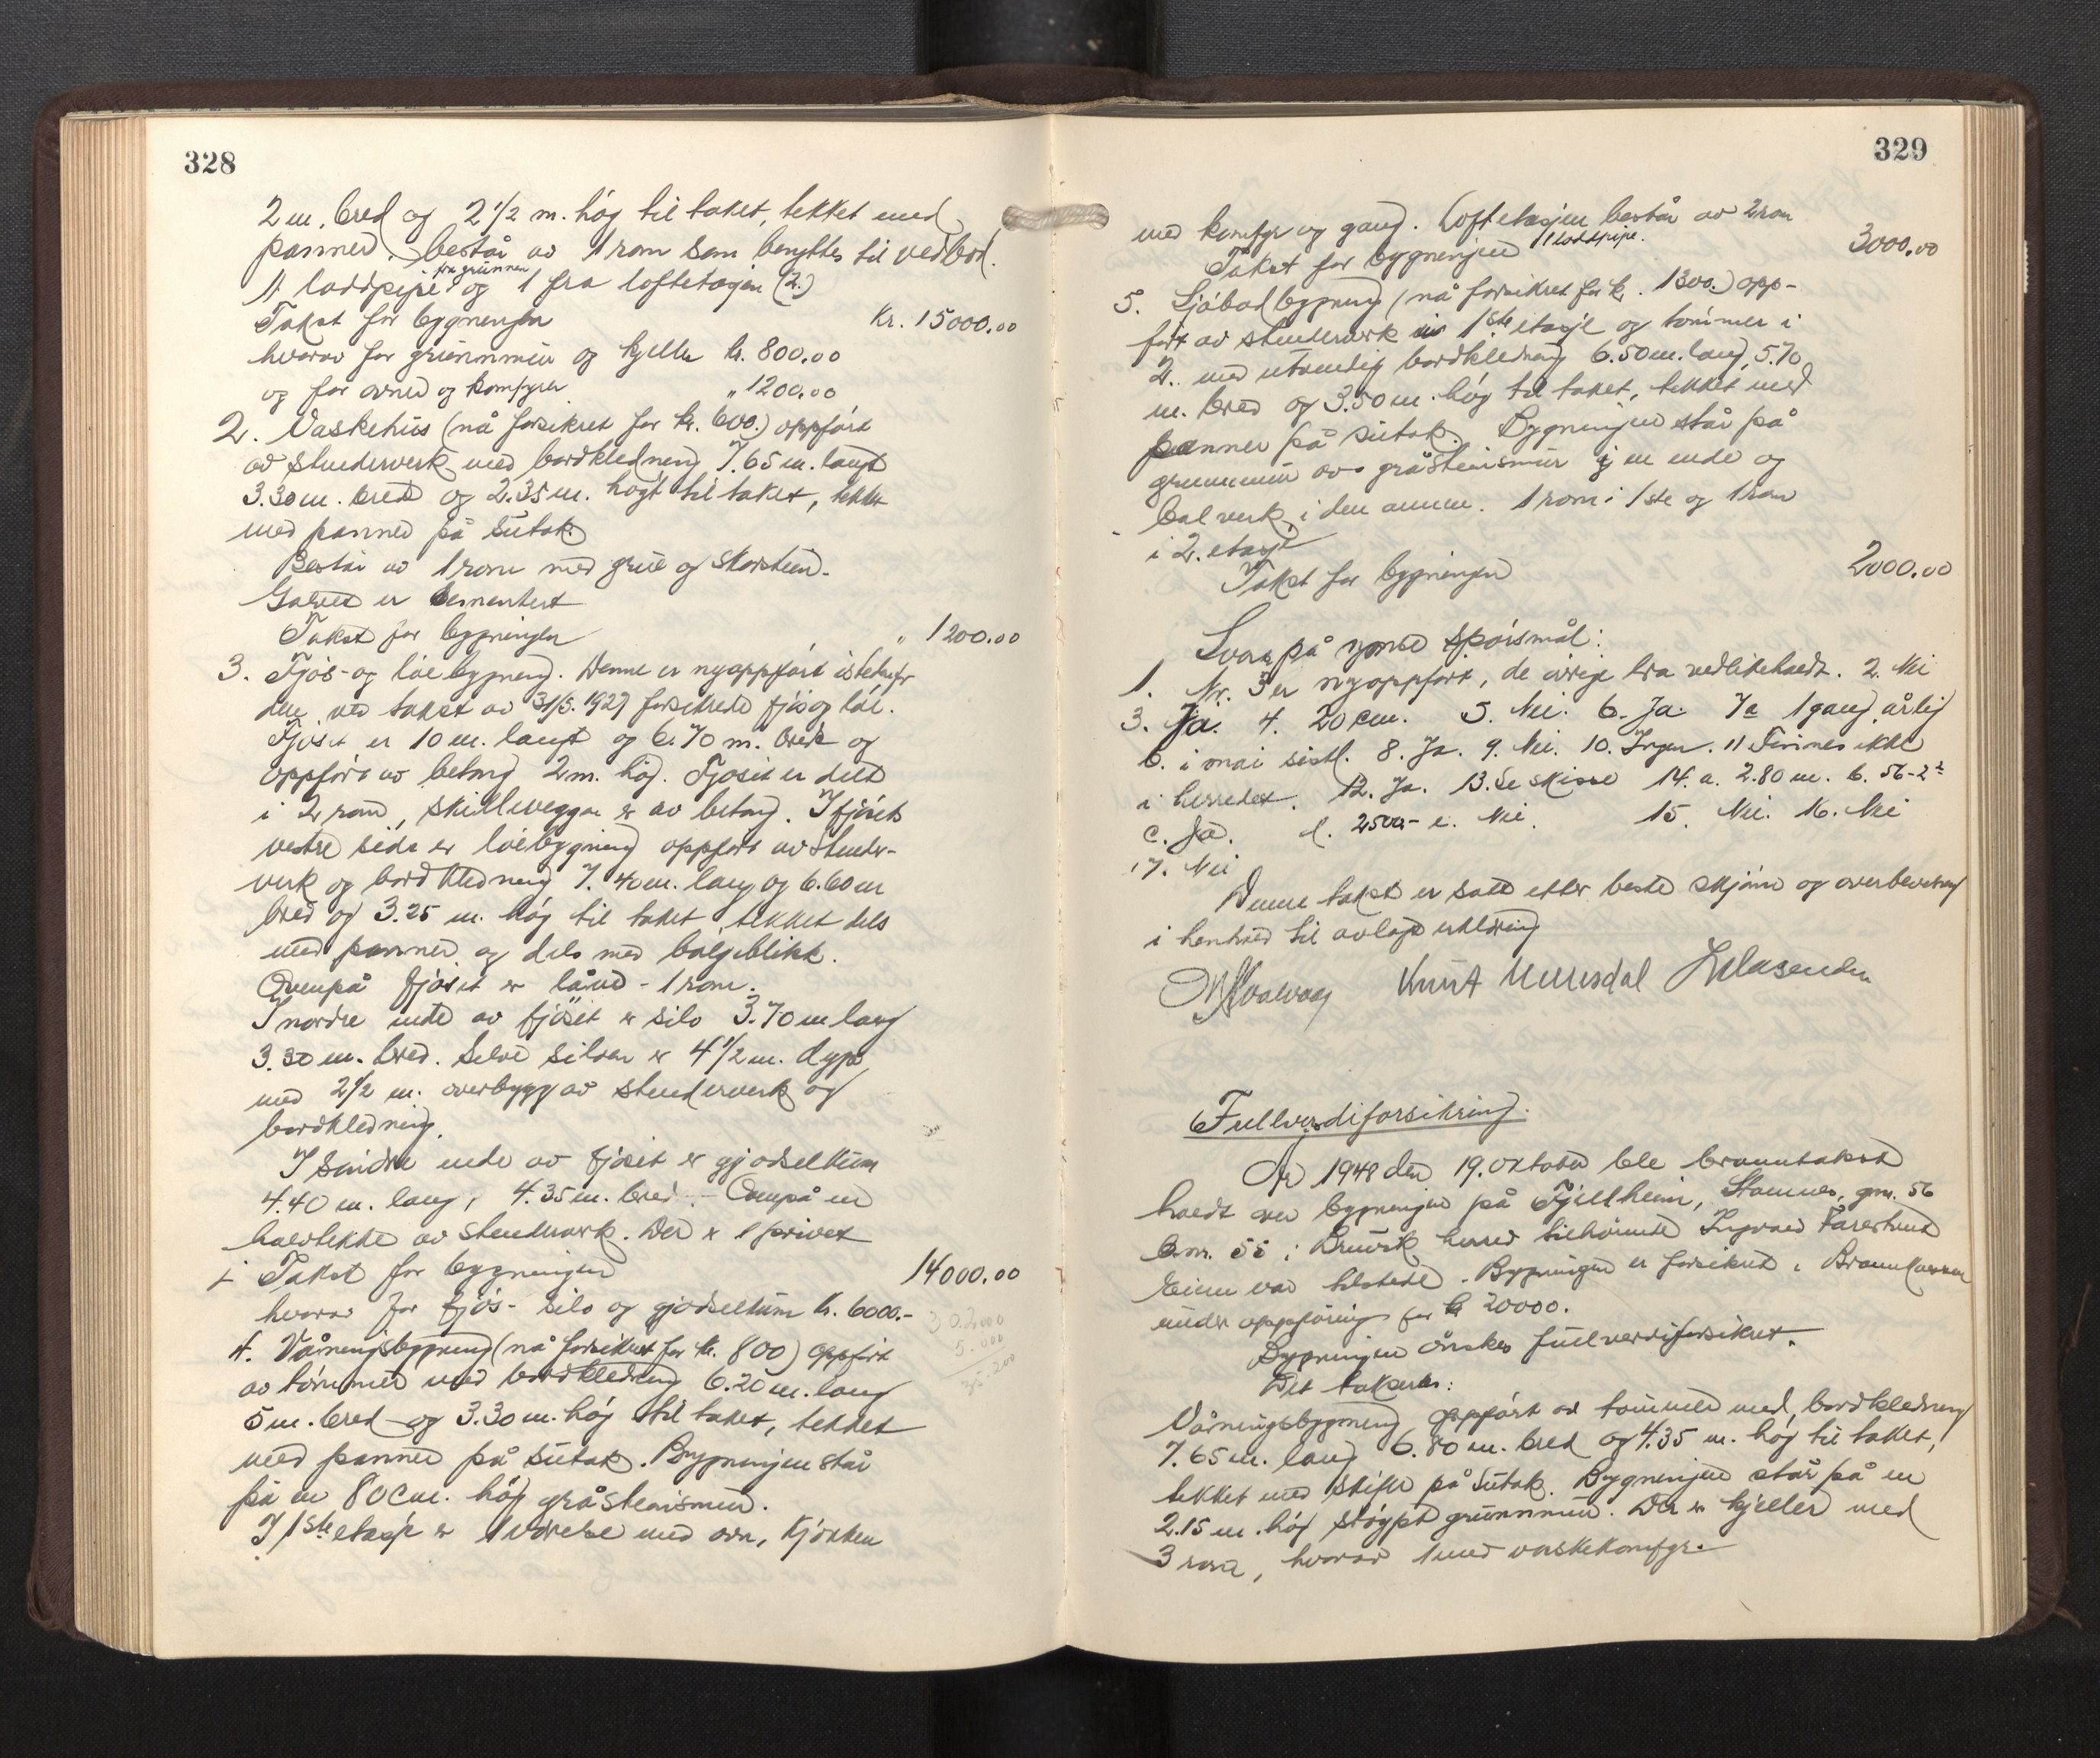 328
2 m. bred og 2 1/2 m. høg til taket, tekket med
panner. består av 1 rom som benyttes til vedbod.
1 loddpipe fra grunnen og 1 fra loftetasjen (2.)
Takst for bygningen Kr. 15000.00
hvorav for grunnmur og kjeller kr. 800.00
og for ovner og komfyrer " 1200.00
2. Vaskehus (nå forsikret for kr. 600.) oppført
av stenderverk med bordkledning 7.65 m. langt
3.30 m. bred og 2.35 m. høgt til taket, tekket
med panner på sutak.
Består av 1 rom med grue og skorstein.
Golvet er sementert
Takst for bygningen " 1200.00
3. Fjøs- og løebygning. Denne er nyoppført istedenfor
den ved takst av 31/5. 1927 forsikrede fjøs og løe.
Fjøset er 10 m. langt og 6.70 m. bredt og
oppført av betong 2 m. høg. Fjøset er delt
i 2 rom, skilleveggen er av betong. I fjøsets
vestre side er løebygning oppført av stender-
verk og bordkledning 7.40 m. lang og 6.60 m
bred og 3.25 m. høg til taket, tekket dels
med panner og dels med bølgeblikk.
Ovenpå fjøset er låve - 1 rom.
I nordre ende av fjøset er silo 3.70 m lang
3.30 m. bred. Selve siloen er 4 1/2 m. dyp,
med 2 1/2 m. overbygg av stenderverk og
bordkledning.
I søndre ende av fjøset er gjødselkum
4.40 m. lang, 4.35 m. bred. - Ovenpå en
halvtekke av stenderverk. Der er 1 privet
Takst for bygningen 14000.00
hvorav for fjøs- silo og gjødselkum kr. 6000.-
4. Våningsbygning (nå forsikret for kr. 800) oppført
av tømmer med bordkledning 6.20 m. lang
5 m. bred og 3.30 m. høg til taket, tekket
med panner på sutak. Bygningen står
på en 80 cm. høg gråsteinsmur.
I 1ste etasje er 1 værelse med ovn, kjøkken
329
med komfyr og gang. Loftetasjen består av 2 rom
1 loddpipe.
Takst for bygningen 3000.00
5. Sjøbodbygning (nå forsikret for kr. 1300.) opp-
ført av stenderverk i 1ste etasje og tømmer i
2. med utvendig bordkledning 6.50 m. lang, 5.70
m. bred og 3.50 m. høg til taket, tekket med
panner på sutak. Bygningen står på
grunnmur av gråsteinsmur i en ende og
bolverk i den annen. 1 rom i 1ste og 1 rom
i 2. etasje
Takst for bygningen 2000.00
Svar på spørsmål:
1. Nr. 3 er nyoppført, de øvrige bra vedlikeholdt. 2. Nei
3. Ja. 4. 20 cm. 5. Nei. 6. Ja. 7a 1 gang årlig
b. i mai sistl. 8. Ja. 9. Nei. 10. Ingen. 11 Finnes ikke
i herredet. 12. Ja. 13. Se skisse 14. a. 2.80 m. b. 56-2
c. Ja. d. 2500.- e. Nei. 15. Nei. 16. Nei
17. Nei
Denne takst er satt etter beste skjønn og overbevisning
i henhold til avlagt erklæring
Knut
Fullverdiforsikring.
År 1948 den 19. oktober ble branntakst
holdt over bygningen på Fjellheim, Stamnes, gnr. 56
bnr. 55 i Bruvik herred tilhørende Ingvald
Eieren var tilstede. Bygningen er forsikret i Brannkassen
under oppføring for kr 20000.
Bygningen ønskes fullverdiforsikret.
Det takseres:
Våningsbygning oppført av tømmer med bordkledning
7.65 m. lang 6.80 m. bred og 4.35 m. høg til taket,
tekket med skifer på sutak. Bygningen står på en
2.15 m. høg støypt grunnmur. Der er kjeller med
3 rom, hvorav 1 med vaskekomfyr.